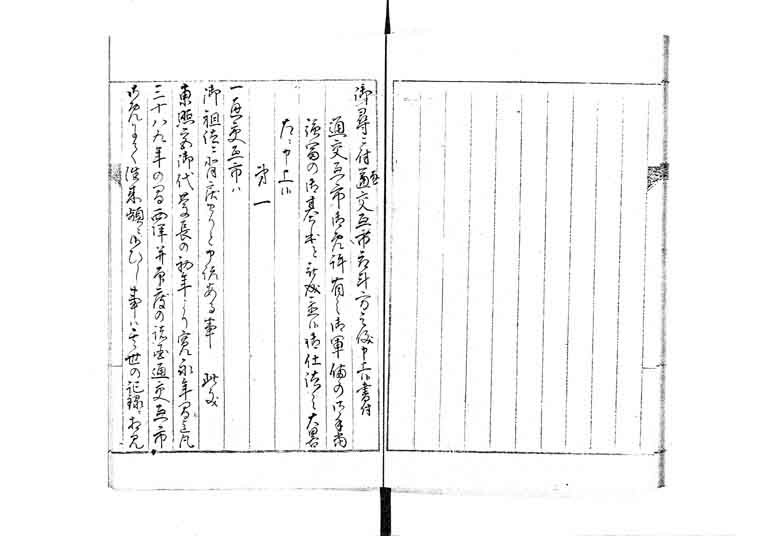 御尋ニ付通交互市御取計方之儀申上候書付
通交互市御免許有之御軍備の御手当
強冨の御基本と被成置候御仕法之大畧
左ニ申上候
第一
一通交互市ハ
御祖法ニ背戻申らと申族ある事 此文
東照宮御代慶長の初年より寛永年間迄凡
三十八九年の間西洋并印度の諸蛮通交互市
御免ありて従来頻ニ候ひし事ハ其世の記録ニ相見